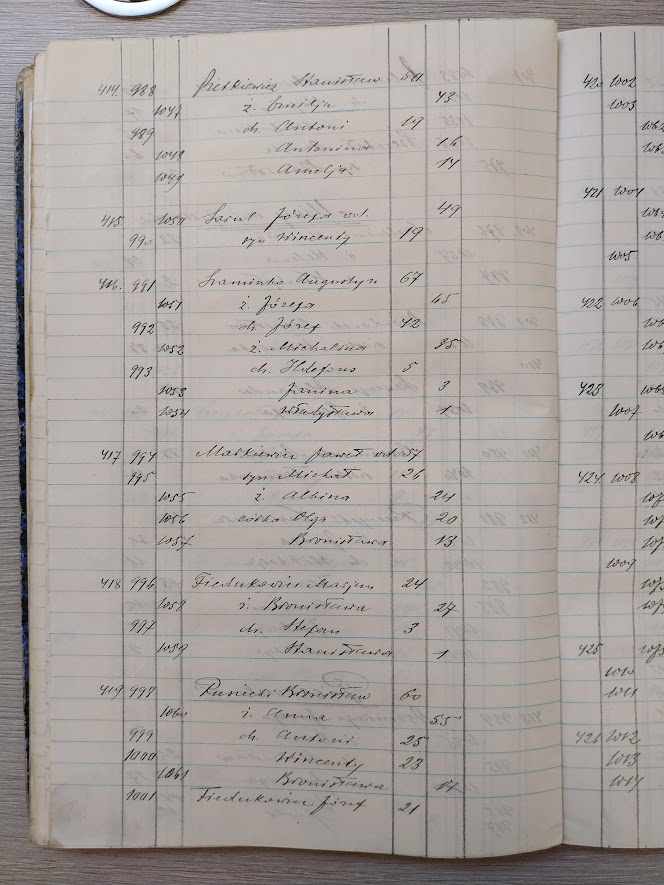 414 988 Pietkiewicz Stanisław 50
1047 ż. Emilja 43
989 dz. Antoni 19
1048 Antonina 16
1049 Amelja 14
415 1050 Józefa wd. 49
990 syn Wincenty 19
416. 991 Augustyn 67
1051 ż. Józefa 65
992 dz. Józef 42
1052 ż. Michalina 35
993 dz. Ildefons 5
1053 Janina 3
1054 Władysława 1
417 994 Markiewicz Paweł wd. 57
995 syn Michał 26
1055 ż. Albina 24
1056 córka Olga 20
1057 Bronisława 13
418 996 Fiedukowicz Marjan 24
1058 ż. Bronisława 27
997 dz. Stefan 3
1059 Stanisława 1
419 998 Rusiecki Bronisław 60
1060 ż. Anna 55
999 dz. Antoni 25
1000 Wincenty 23
1061 Bronisława
1001 Fiedukowicz Józef 21
420 1002
1003
421 1004
1005
422 1006
423
1007
424 1008
1009
425
1010
1011
426 1012
1013
1014